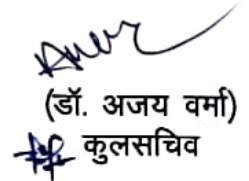 (डॉ. अजय वर्मा)
कुलसचिव